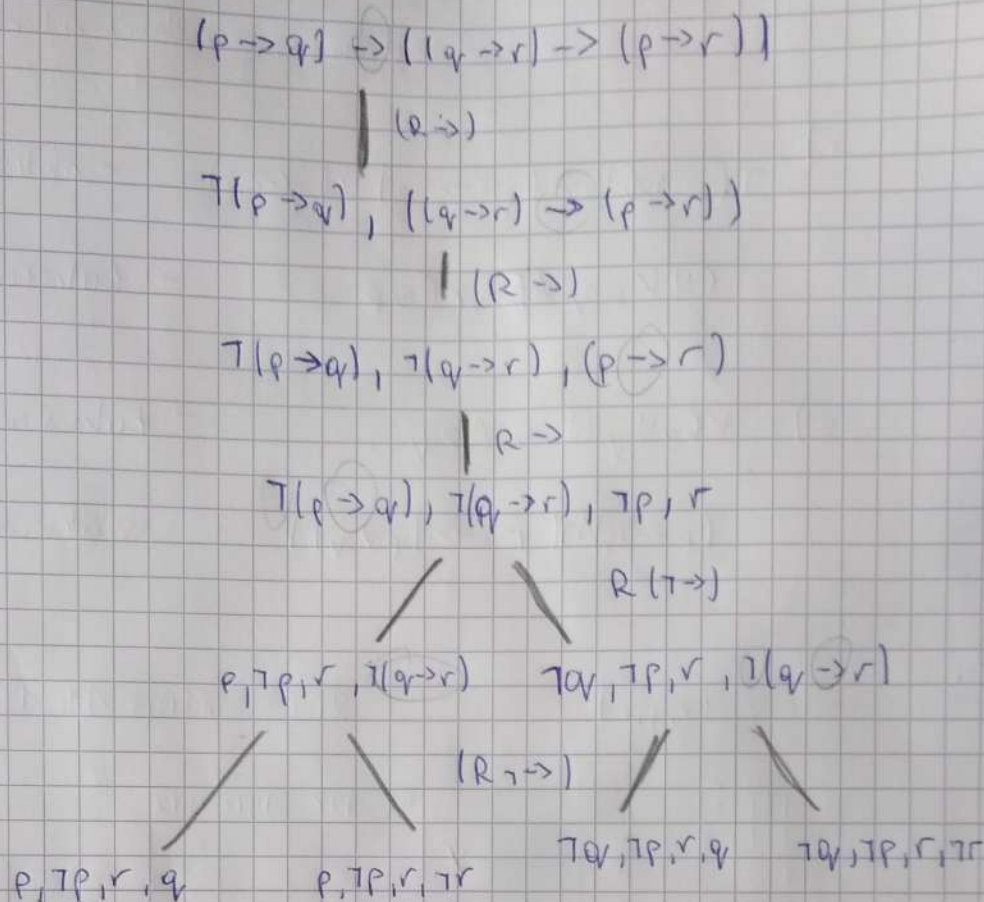 (p → q) → ((q → r) → (p → r))
(R →)
¬(p → q), ((q → r) → (p → r))
(R →)
¬(p → q), ¬(q → r), (p → r)
R →
¬(p → q), ¬(q → r), ¬p, r
R (¬ →)
p, ¬p, r, ¬(q → r) ¬q, ¬p, r, ¬(q → r)
(R ¬ →)
p, ¬p, r, q p, ¬p, r, ¬r ¬q, ¬p, r, q ¬q, ¬p, r, ¬r